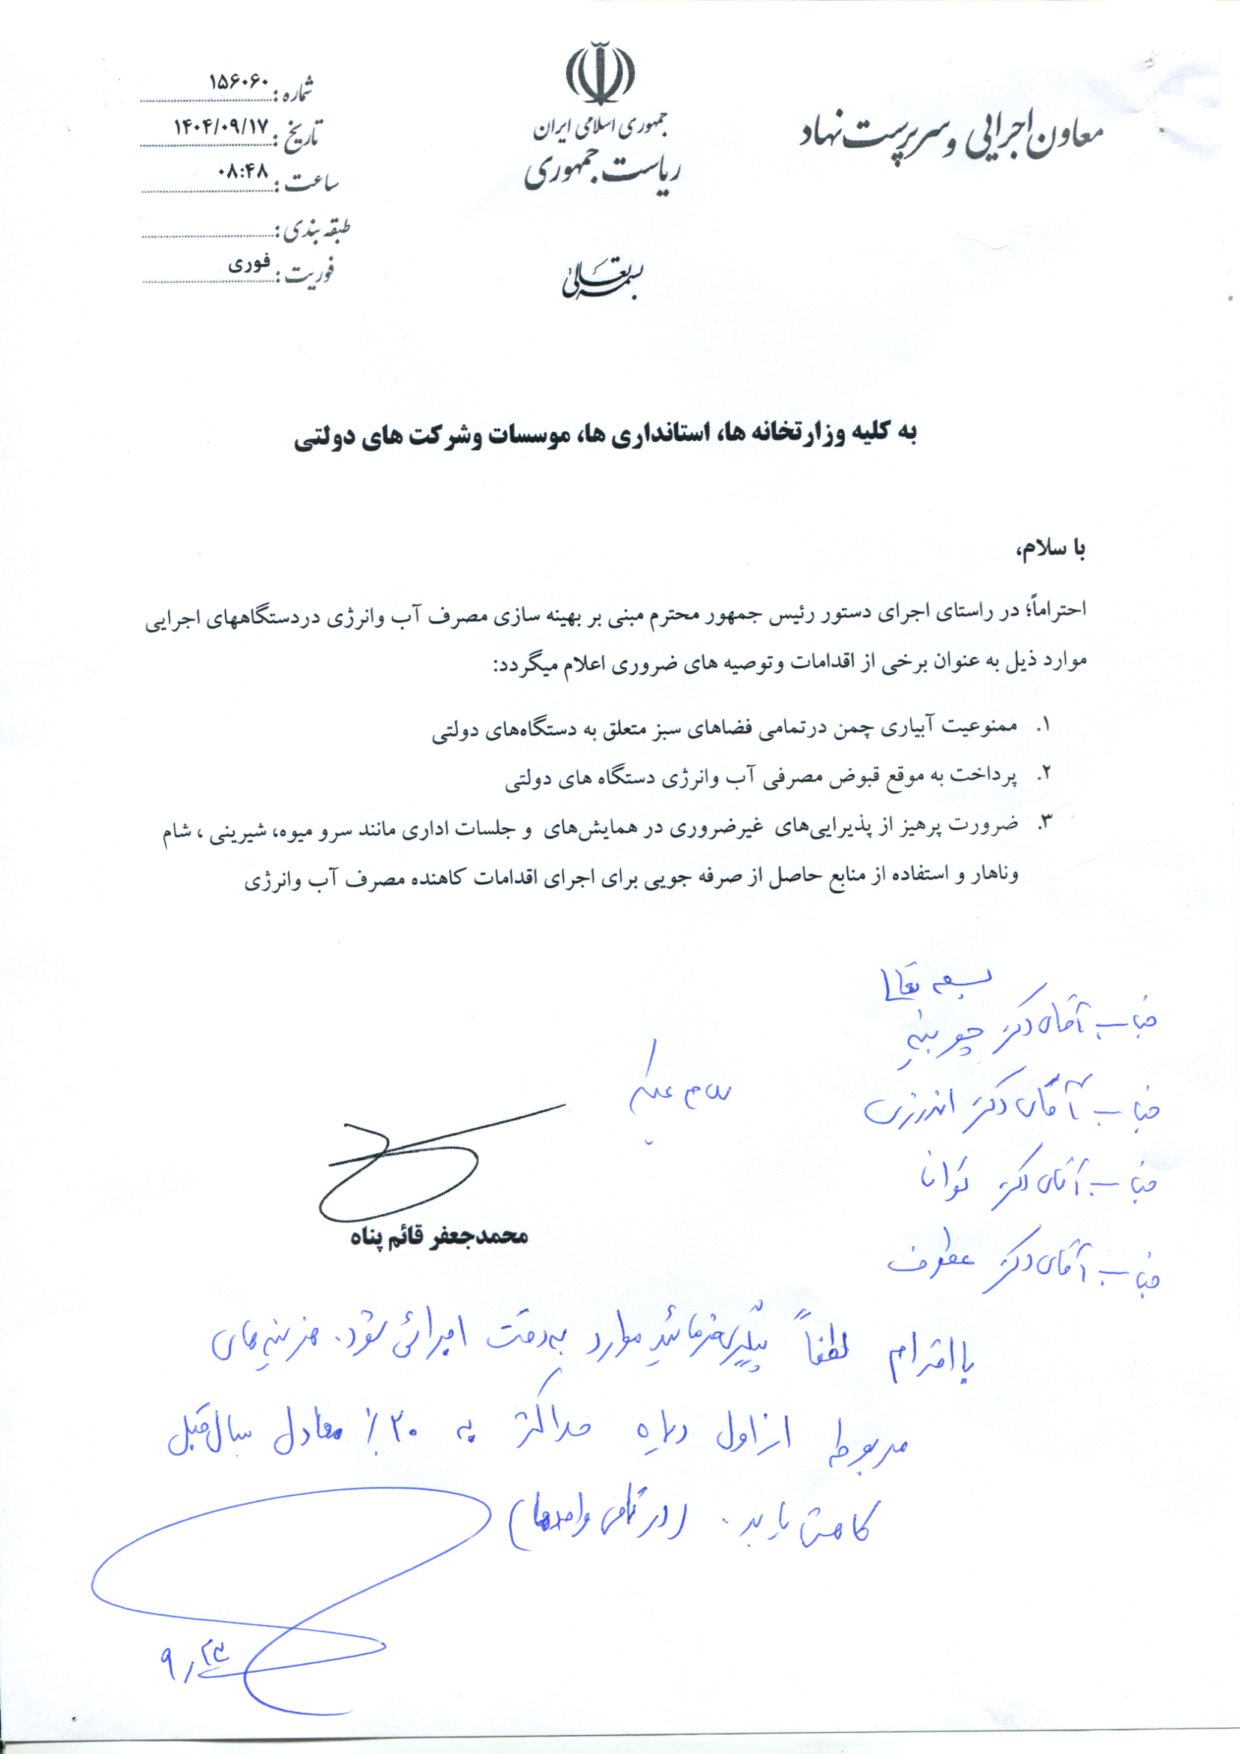 معاون اجرایی و سرپرست نهاد
جمهوری اسلامی ایران
ریاست جمهوری
شماره: ۱۵۶۰۶۰
تاریخ: ۱۴۰۴/۰۹/۱۷
ساعت: ۰۸:۴۸
طبقه بندی:
فوریت: فوری
بسمه تعالی
به کلیه وزارتخانه ها، استانداری ها، موسسات وشرکت های دولتی
با سلام،
احتراماً؛ در راستای اجرای دستور رئیس جمهور محترم مبنی بر بهینه سازی مصرف آب وانرژی دردستگاههای اجرایی
موارد ذیل به عنوان برخی از اقدامات وتوصیه های ضروری اعلام میگردد:
۱. ممنوعیت آبیاری چمن درتمامی فضاهای سبز متعلق به دستگاه‌های دولتی
۲. پرداخت به موقع قبوض مصرفی آب وانرژی دستگاه های دولتی
۳. ضرورت پرهیز از پذیرایی‌های غیرضروری در همایش‌های و جلسات اداری مانند سرو میوه، شیرینی ، شام
وناهار و استفاده از منابع حاصل از صرفه جویی برای اجرای اقدامات کاهنده مصرف آب وانرژی
بسمه تعالی
جناب آقای دکتر چوبینه
جناب آقای دکتر اندرزی
سلام علیکم
جناب آقای دکتر توانا
جناب آقای دکتر عطوف
محمدجعفر قائم پناه
بااحترام لطفاً پیگیری فرمائید موارد به دقت اجرائی شود. هزینه های
مربوطه از اول دیماه حداکثر به ۲۰٪ معادل سال قبل
کاهش یابد. (در تمامی واحدها)
۹/۲۳